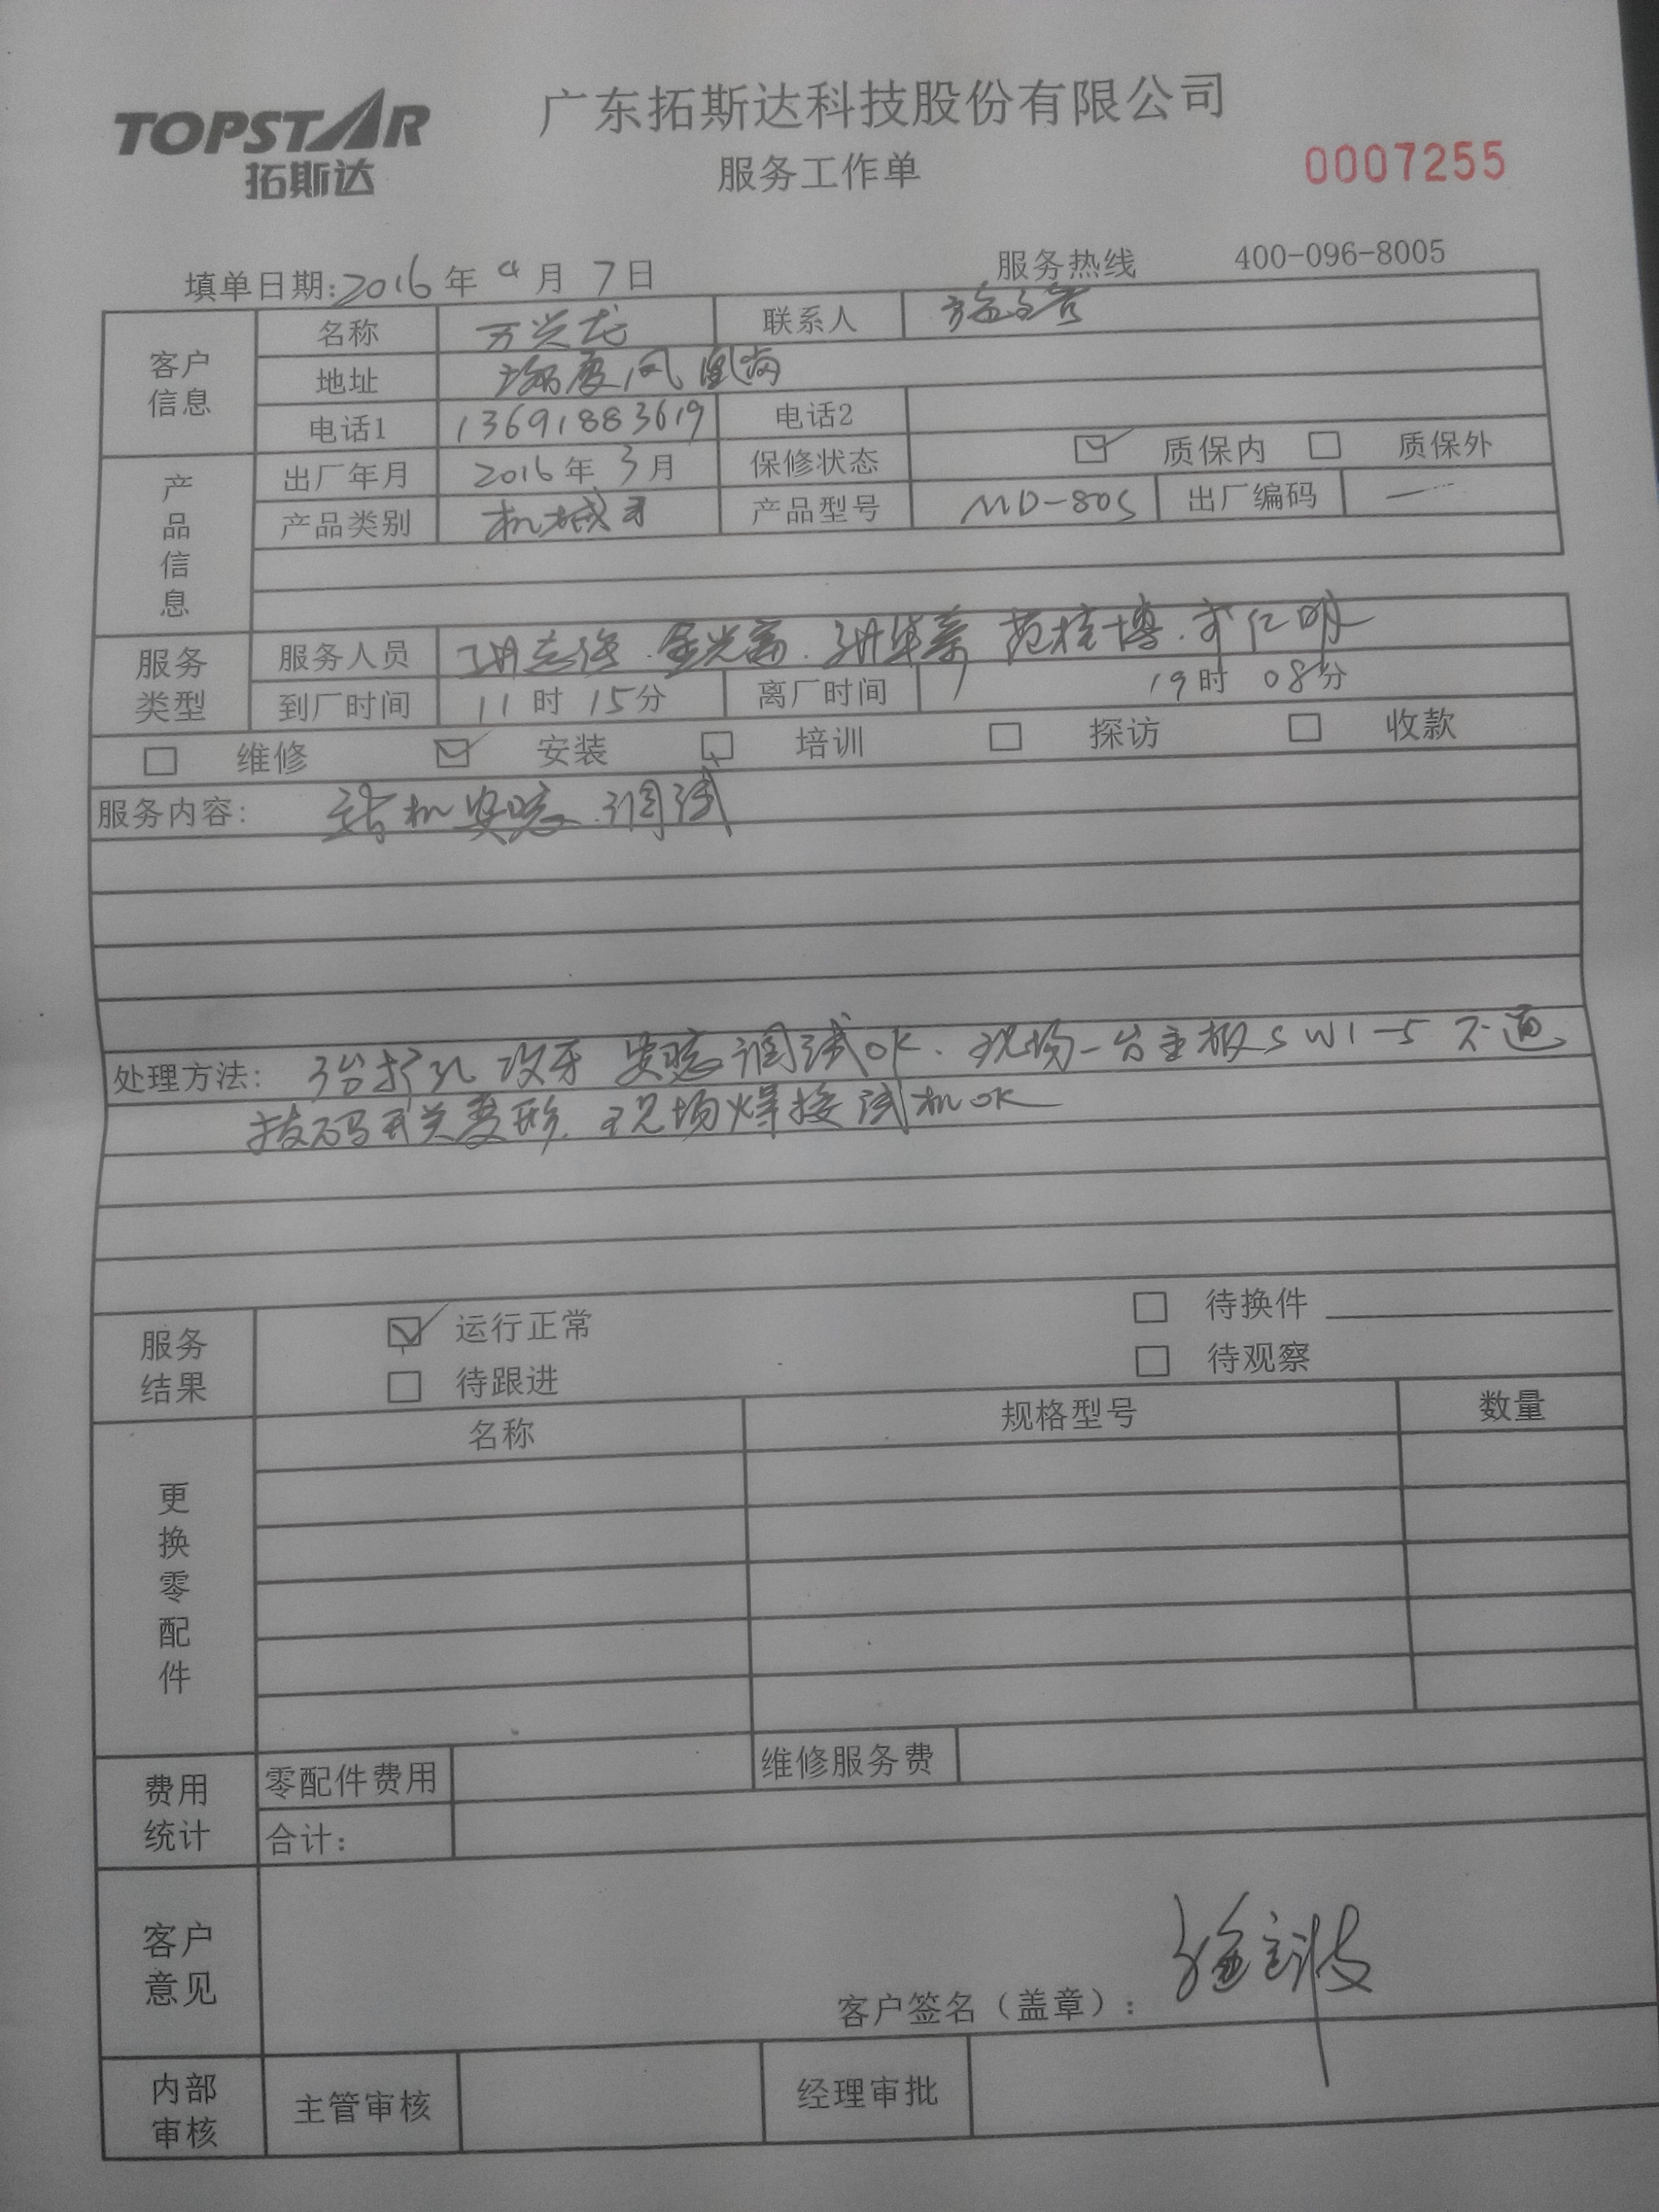 TOPSTAR
拓斯达
广东拓斯达科技股份有限公司
服务工作单
0007255
填单日期:2016年 4月 7日 服务热线 400-096-8005
客户信息
名称 万兴龙 联系人
地址 凤凰岗
电话1 13691883619 电话2
产品信息
出厂年月 2016年 3月 保修状态 ☑ 质保内 □ 质保外
产品类别 机械手 产品型号 MD-80S 出厂编码 —
服务类型
服务人员 范桂博
到厂时间 11时 15分 离厂时间 19时 08分
□ 维修 ☑ 安装 □ 培训 □ 探访 □ 收款
服务内容: 钻机安装.调试
处理方法: 3台打孔 攻牙 安装调试OK. 现场一台主板SW1-5 不通
拔码开关变形. 现场焊接试机OK
服务结果
☑ 运行正常 □ 待换件
□ 待跟进 □ 待观察
更换零配件
名称 规格型号 数量
费用统计
零配件费用 维修服务费
合计:
客户意见
客户签名(盖章):
内部审核
主管审核 经理审批